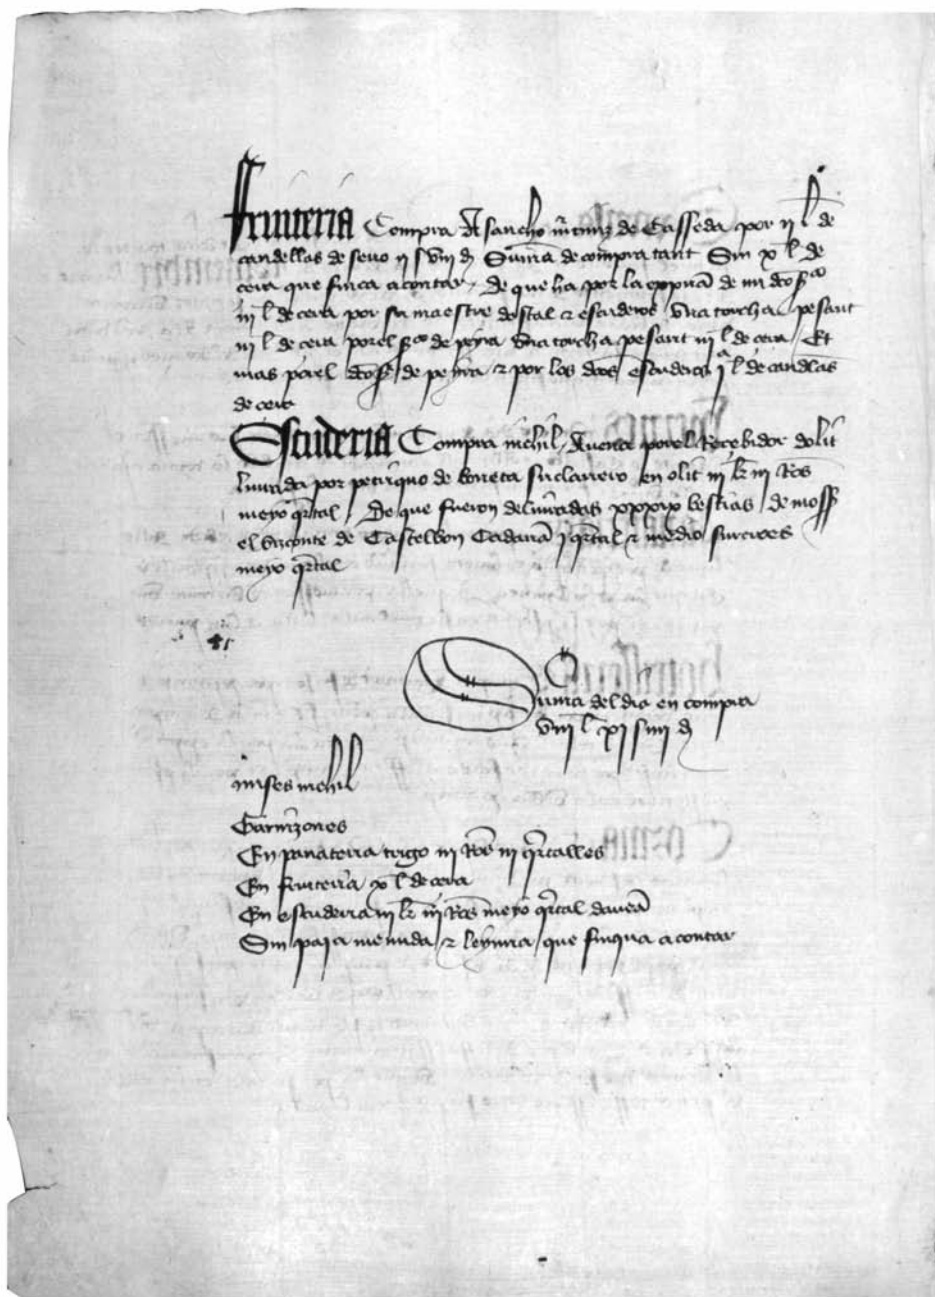 Fruiteria Compra A sancho mrtniz de Casseda por ii l de
candellas de seuo ii s viii d Suma de compra tant Sin x l de
cera que finca a contar, de que ha por la
iii l de cera por su maestre dostal z escuderos vna torcha pesant
iii l de cera por el de peyra vna torcha pesant iii l de cera Et
mas por el de peyra z por los dros escuderos i l de candelas
de cera
Escuderia Compra nichil, Auena por el Recebidor dolit
liurada por petriquo de boneta su clauero en olit iii k iii Ros
meyo qrtal, De que fueron deliuradas xxxxix bestias de moss
el vizconte de Castelbon Cadauna i qrtal z medio surcroes
meyo qrtal
Suma del dia en compra
viii l xi s iiii d
mises nichil
Garnizones
En panateria trigo iii Ros iii qrtalles
En fruteria x l de cera
En escuderia iii k iii Ros meyo qrtal dauena
Sin paja menuda z leynna, que finqua a contar